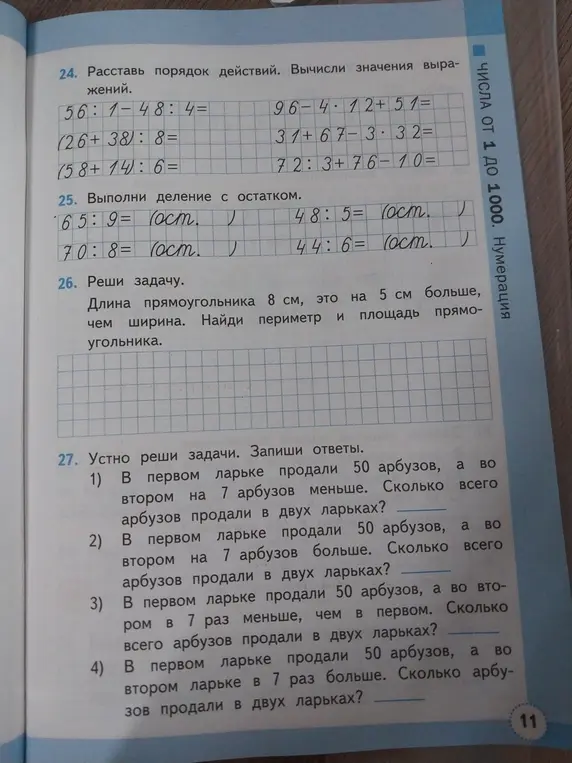 24. Расставь порядок действий. Вычисли значения выра-
жений.
56 : 1 − 48 : 4 =
96 − 4 · 12 + 51 =
(26 + 38) : 8 =
31 + 67 − 3 · 32 =
(58 + 14) : 6 =
72 : 3 + 76 − 10 =
25. Выполни деление с остатком.
65 : 9 = (ост. )
48 : 5 = (ост. )
70 : 8 = (ост. )
44 : 6 = (ост. )
26. Реши задачу.
Длина прямоугольника 8 см, это на 5 см больше,
чем ширина. Найди периметр и площадь прямо-
угольника.
27. Устно реши задачи. Запиши ответы.
1) В первом ларьке продали 50 арбузов, а во
втором на 7 арбузов меньше. Сколько всего
арбузов продали в двух ларьках?
2) В первом ларьке продали 50 арбузов, а во
втором на 7 арбузов больше. Сколько всего
арбузов продали в двух ларьках?
3) В первом ларьке продали 50 арбузов, а во вто-
ром в 7 раз меньше, чем в первом. Сколько
всего арбузов продали в двух ларьках?
4) В первом ларьке продали 50 арбузов, а во
втором ларьке в 7 раз больше. Сколько арбу-
зов продали в двух ларьках?
ЧИСЛА ОТ 1 ДО 1000. Нумерация
11